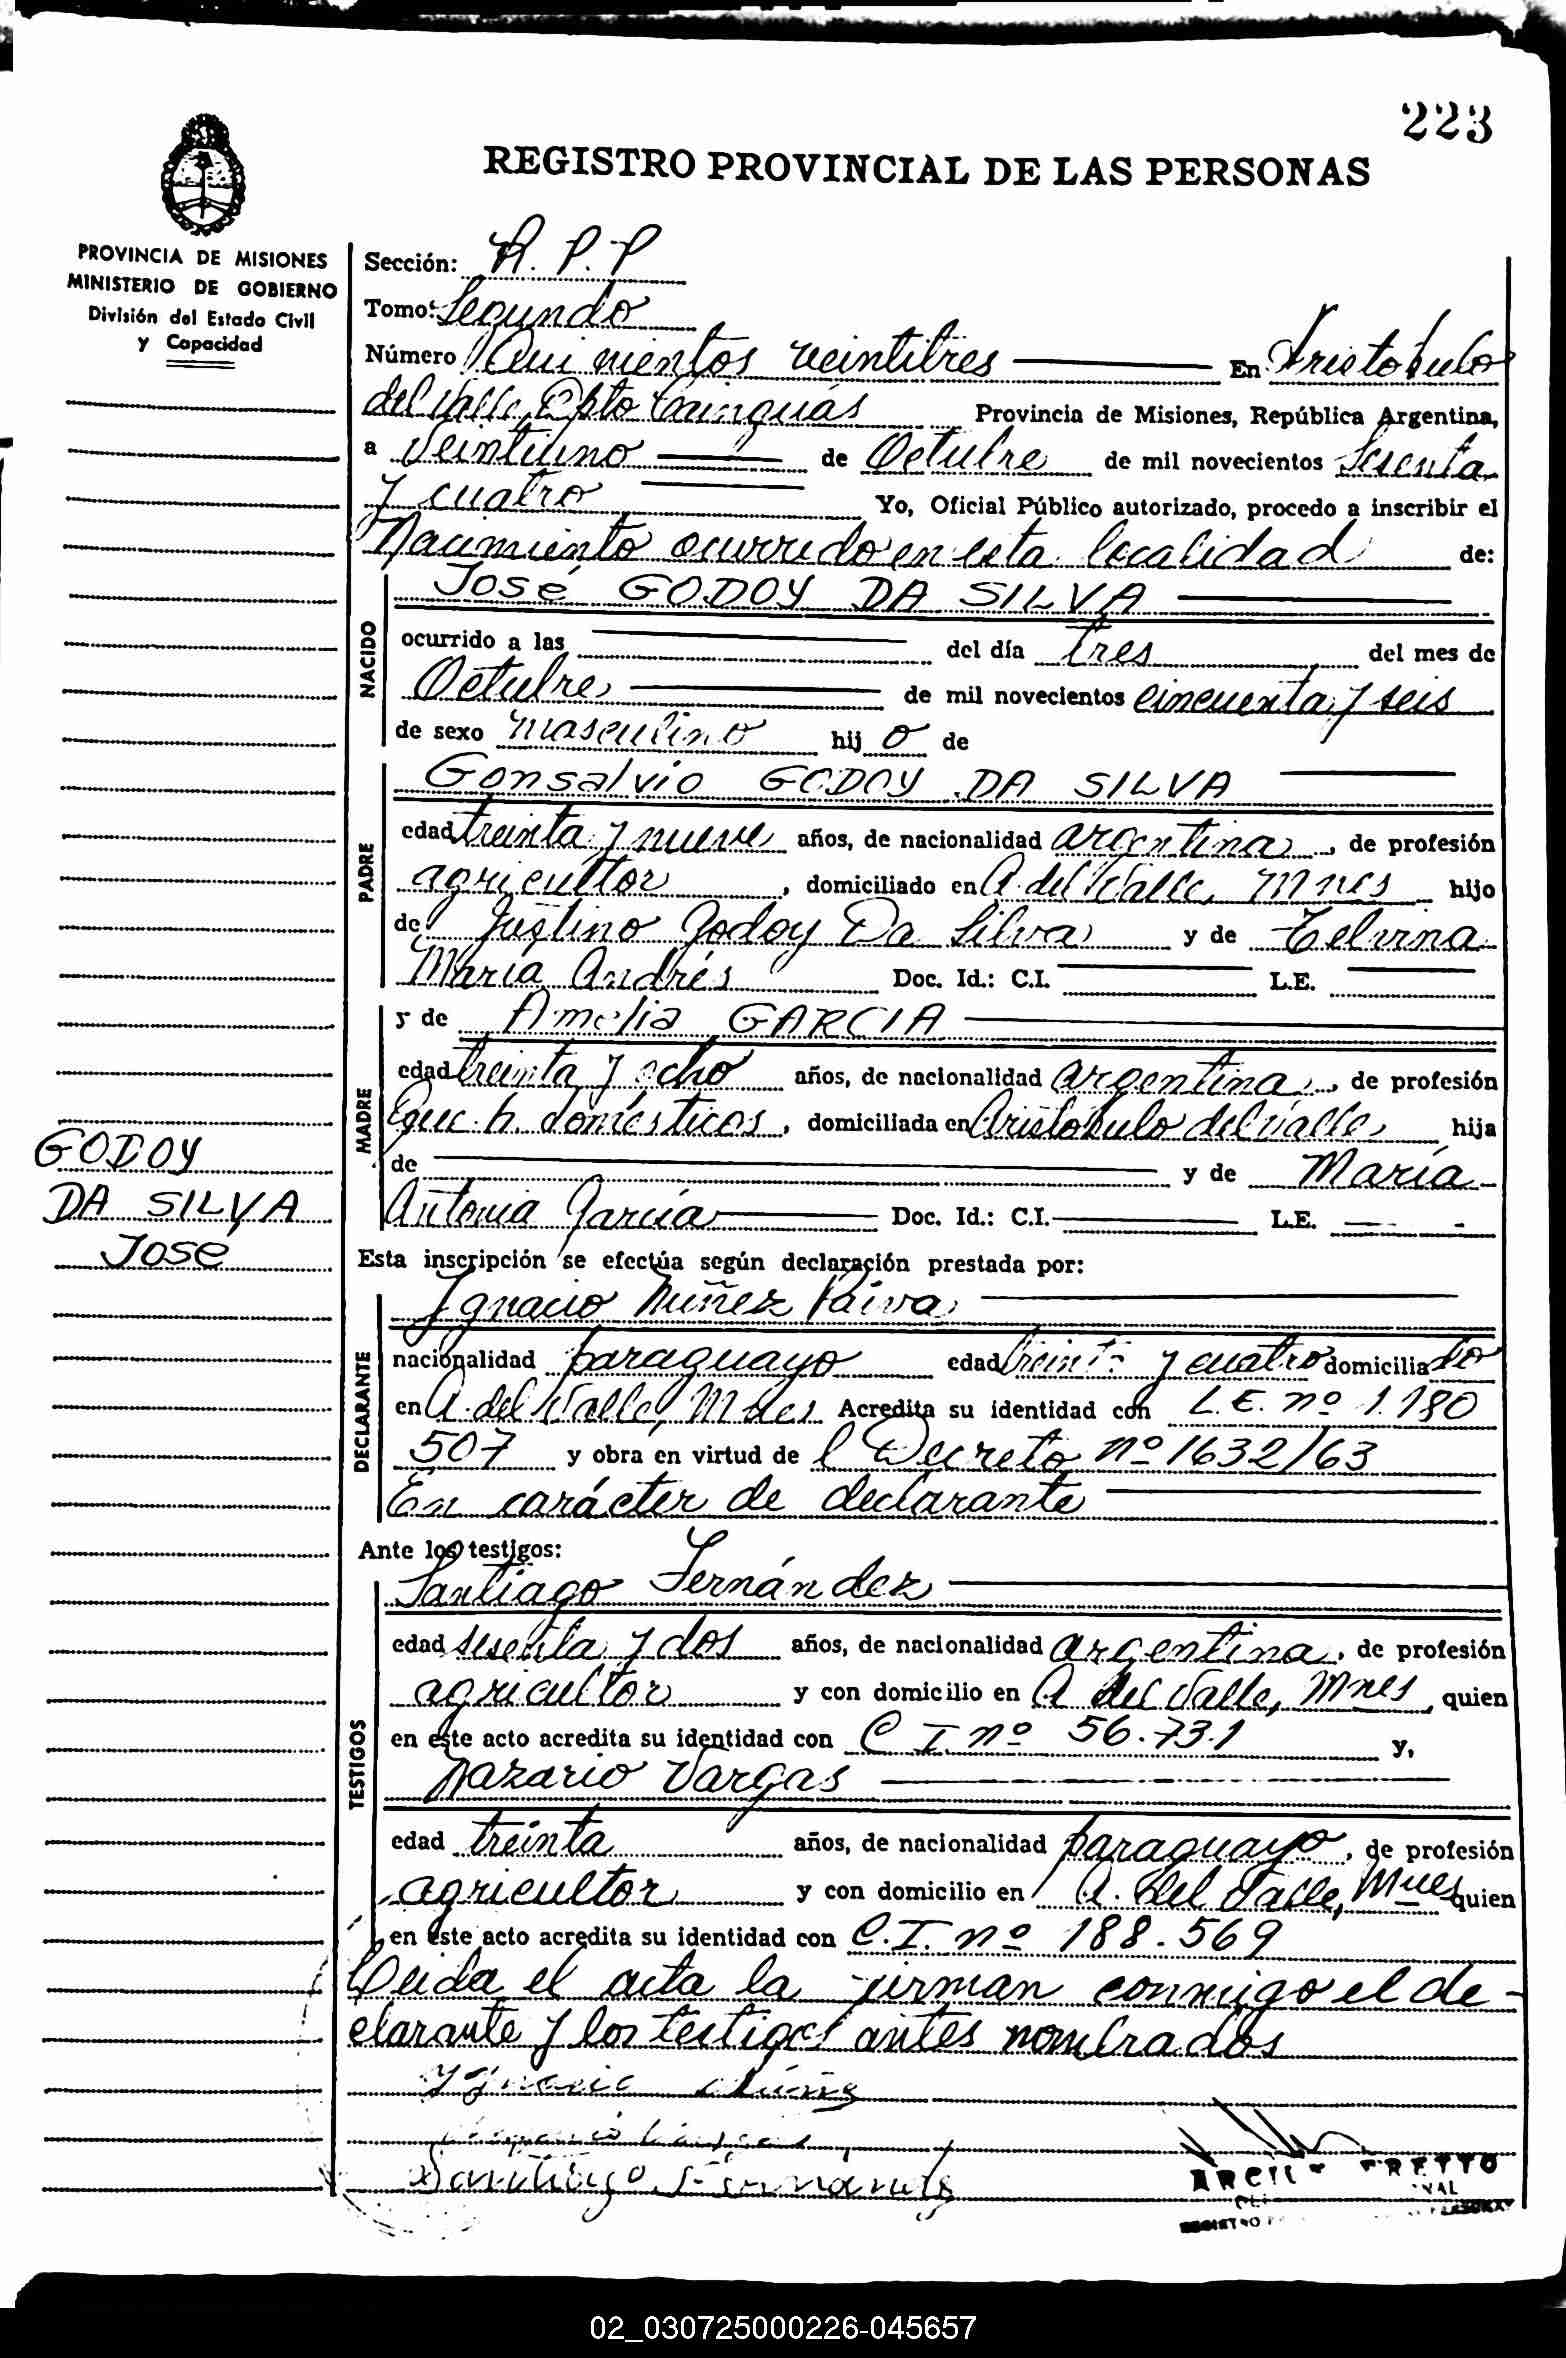 223
REGISTRO PROVINCIAL DE LAS PERSONAS
PROVINCIA DE MISIONES
MINISTERIO DE GOBIERNO
División del Estado Civil
y Capacidad
Sección: R. P. P
Tomo: Segundo
Número Quinientos veintitres En Aristóbulo
del Valle, Dpto Cainguás Provincia de Misiones, República Argentina,
a Veintiuno de Octubre de mil novecientos sesenta
y cuatro Yo, Oficial Público autorizado, procedo a inscribir el
Nacimiento ocurrido en esta localidad de:
NACIDO
José GODOY DA SILVA
ocurrido a las del día tres del mes de
Octubre de mil novecientos cincuenta y seis
de sexo masculino hij o de
PADRE
Gonsalvio GODOY DA SILVA
edad treinta y nueve años, de nacionalidad argentina, de profesión
agricultor, domiciliado en A. del Valle, Mnes hijo
de Justino Godoy Da Silva y de Telvina
María Andrés Doc. Id.: C.I. L.E.
MADRE
y de Amelia GARCIA
edad treinta y ocho años, de nacionalidad argentina, de profesión
Que h. domésticos, domiciliada en Aristóbulo del Valle, hija
de y de María
Antonia García Doc. Id.: C.I. L.E.
GODOY
DA SILVA
José
Esta inscripción se efectúa según declaración prestada por:
DECLARANTE
Ignacio Núñez Paiva
nacionalidad paraguayo edad treinta y cuatro domicilia do
en A. del Valle, Mnes Acredita su identidad con L.E. nº 1.180
507 y obra en virtud de l Decreto nº 1632/63
En carácter de declarante
Ante los testigos:
TESTIGOS
Santiago Fernández
edad sesenta y dos años, de nacionalidad argentina, de profesión
agricultor y con domicilio en A del Valle, Mnes, quien
en este acto acredita su identidad con C I. nº 56.731 y,
Nazario Vargas
edad treinta años, de nacionalidad paraguayo, de profesión
agricultor y con domicilio en A. del Valle, Mnes quien
en este acto acredita su identidad con C.I. nº 188.569
Leida el acta la firman conmigo el de-
clarante y los testigos antes nombrados
Ygnacio Núñez
Santiago Fernandez
02_030725000226-045657